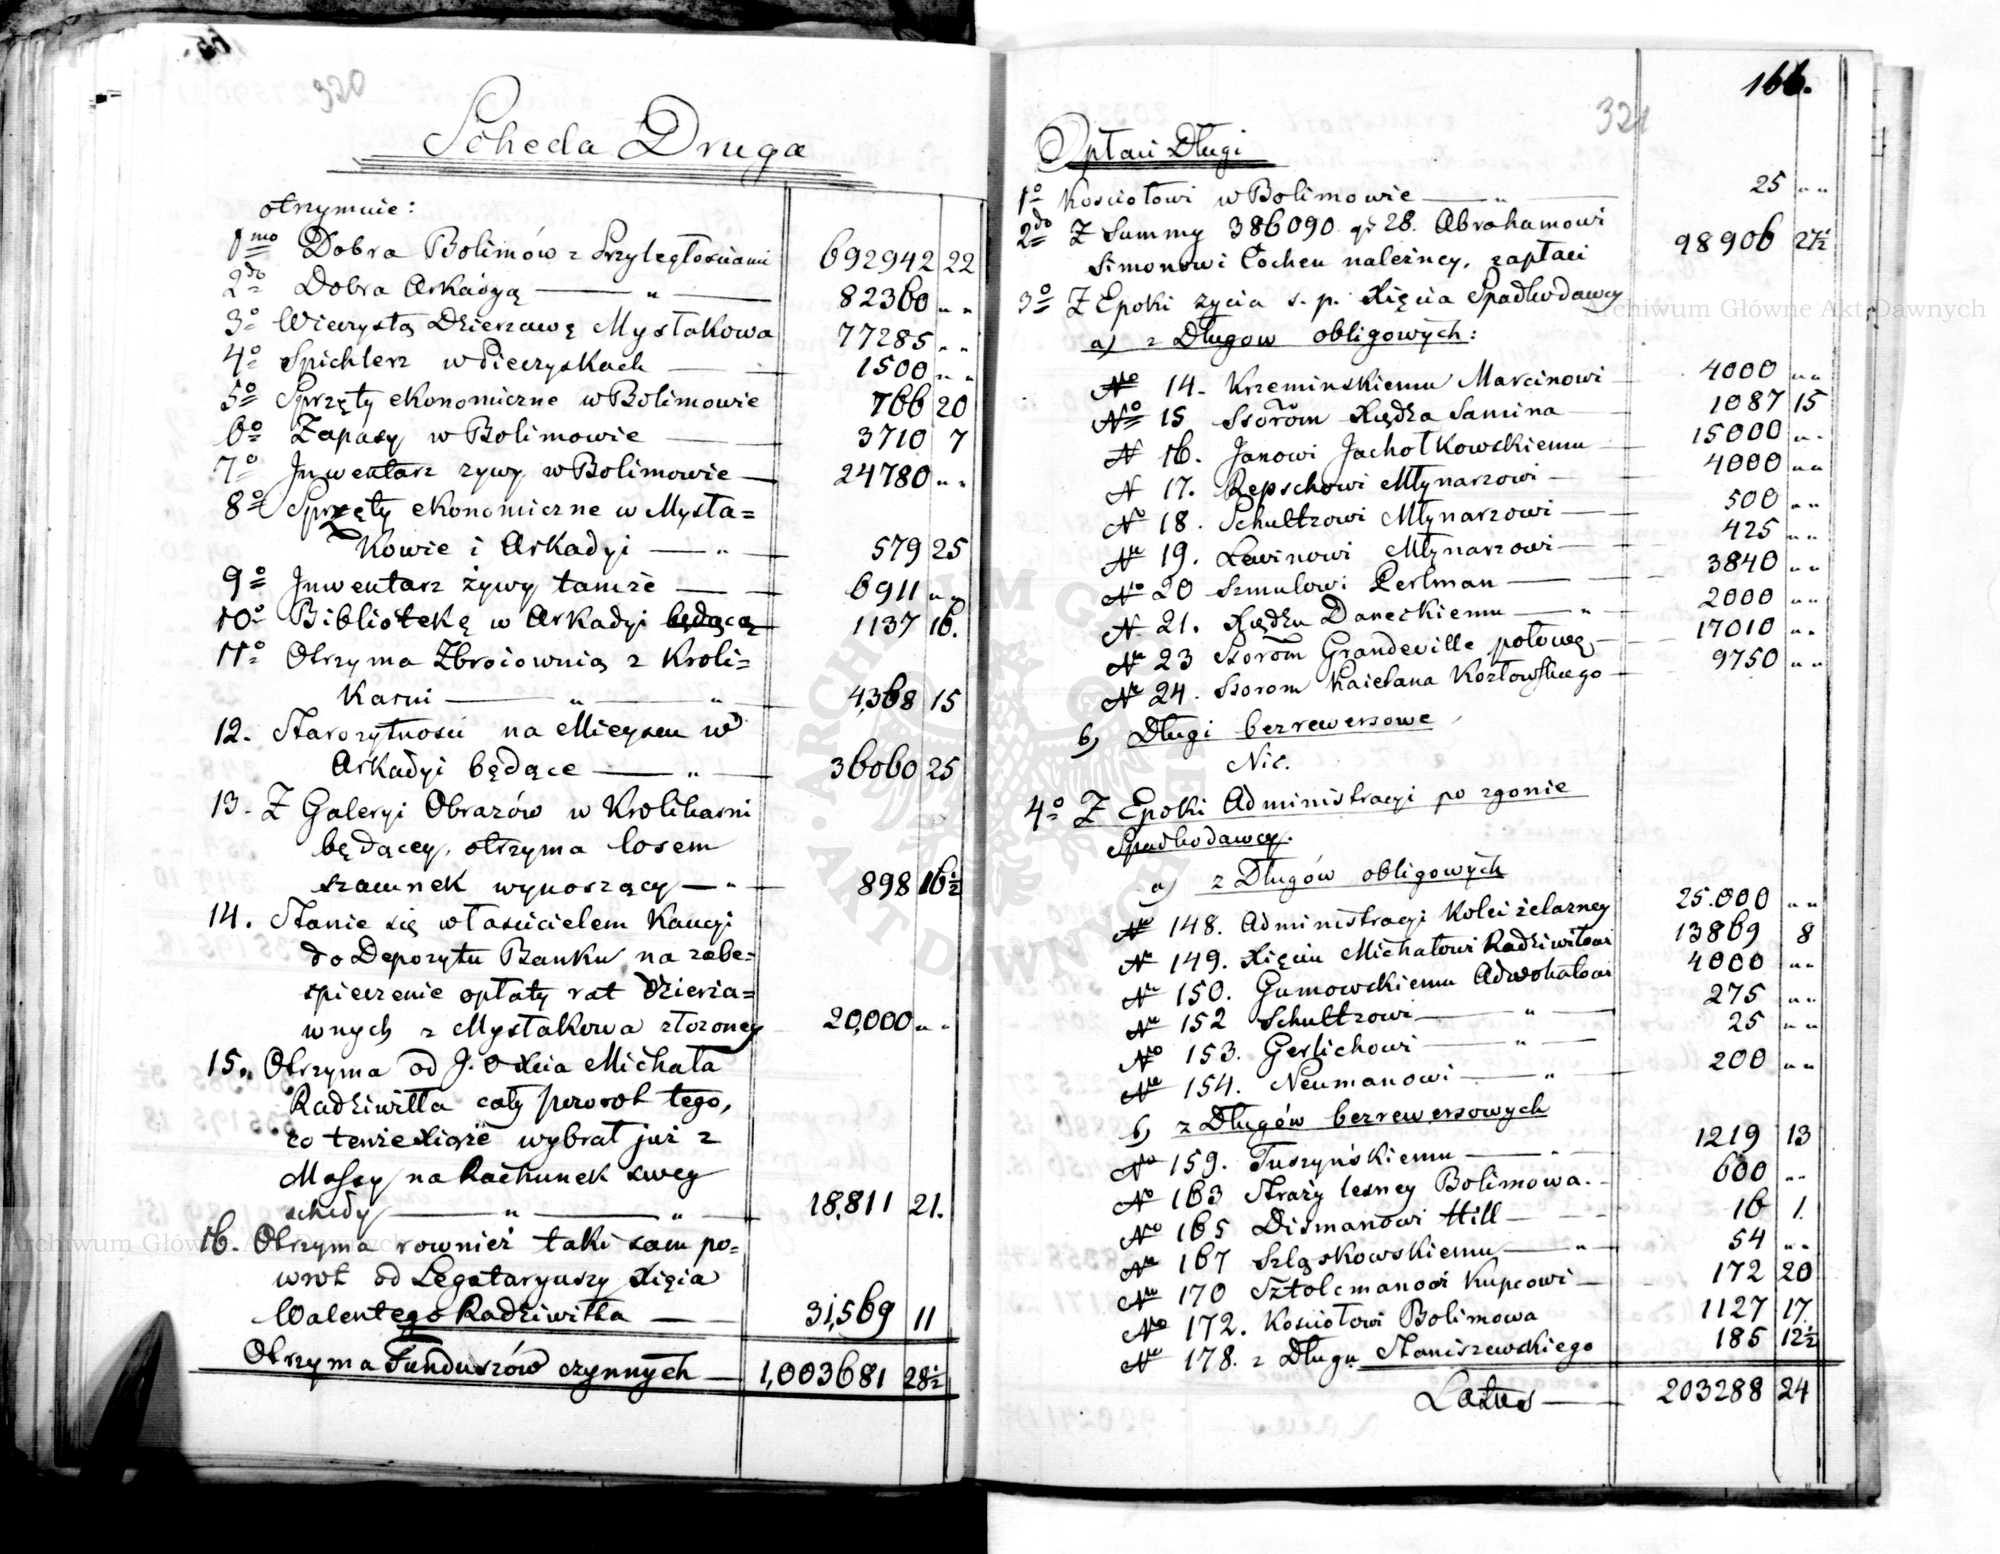 320
Scheda Druga
otrzymuie:
1mo Dobra Bolimów z Przyległościami 692942 22
2do Dobra Arkadyą — " — 82360 " "
3o Wieczystą Dzierzawę Mysłakowa 77285 " "
4o Spichlerz w Pieczyskach — 1500 " "
5o Sprzęty ekonomiczne w Bolimowie 766 20
6o Zapasy w Bolimowie — 3710 7
7o Inwentarz zywy w Bolimowie — 24780 " "
8o Sprzęty ekonomiczne w Mysła=
kowie i Arkadyi — " — 579 25
9o Inwentarz żywy tamże — 6911 " "
10o Bibliotekę w Arkadyi będącą 1137 16.
11o Otrzyma Zbroiownią z Kroli=
karni — " — " — 4,368 15
12. Starozytnosci na Mieyscu w
Arkadyi będące — " — 36060 25
13. Z Galeryi Obrazów w Krolikarni
będącey, otrzyma losem
szacunek wynoszący — " — 898 16½
14. Stanie się właścicielem Kaucyi
do Depozytu Banku na zabe=
spieczenie opłaty rat dzierża=
wnych z Mysłakowa złozoney 20,000 " "
15. Otrzyma od J. O Xcia Michała
Radziwiłła cały powrot tego,
co tenże Xiąże wybrał już z
Massy na Rachunek swey
schedy — " — " — 18,811 21.
16. Otrzyma rownież taki sam po=
wrot od Legataryuszy Xięcia
Walentego Radziwiłła — 31,569 11
Otrzyma Funduszów czynnych — 1,003681 28½
166.
321
Opłaci Długi
1o Kosciołowi w Bolimowie — " — 25 " "
2do Z Summy 386090 gr 28. Abrahamowi
Simonowi Cochen należney, zapłaci 98906 27½
3o Z Epoki życia s. p. Xięcia Spadkodawcy
a) z Długow obligowych:
No 14. Krzeminskiemu Marcinowi 4000 " "
No 15 Ssorom Xiędza Samina — 1087 15
N 16. Janowi Jachołkowskiemu — 15000 " "
N 17. Repschowi Młynarzowi — 4000 " "
No 18. Schultzowi Młynarzowi — 500 " "
No 19. Lewinowi Młynarzowi — 425 " "
No 20 Szmulowi Perlman — 3840 " "
N. 21. Xiędzu Daneckiemu — " 2000 " "
No 23 Ssorom Grandeville połowę — 17010 " "
No 24. Ssorom Kaietana Kozłowskiego 9750 " "
b) Długi bezrewersowe
Nic.
4o Z Epoki Administracyi po zgonie
Spadkodawcy.
a) z Długów obligowych
No 148. Administracyi Kolei żelazney 25.000 " "
No 149. Xięciu Michałowi Radziwiłłowi 13869 8
No 150. Gumowskiemu Adwokatowi 4000 " "
No 152 Schultzowi — " — 275 " "
No 153. Gerlichowi — " — 25 " "
No 154. Neumanowi — " 200 " "
b) z Długów bezrewersowych
No 159. Tuszyńskiemu — " 1219 13
No 163 Straży lesney Bolimowa. 600 " "
No 165 Dismanowi Hill — 16 1.
No 167 Szląskowskiemu — " 54 " "
No 170 Sztolcmanowi Kupcowi — 172 20
No 172. Kosciołowi Bolimowa 1127 17.
No 178. z Długu Staniszewskiego 185 12½
Latus — 203288 24
Archiwum Główne Akt Dawnych
Archiwum Główne Akt Dawnych
ARCHIWUM GŁÓWNE AKT DAWNYCH